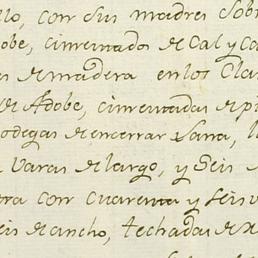 llo, con sus madres sobr
obe, cimentados de Cal y Ca
s de madera en los Cla
de Adobe, cimentadas de pi
odegas de encerrar Lana, l
Varas de largo, y Seis
ra con Cuarenta y Seis v
eis de ancho, techadas de x